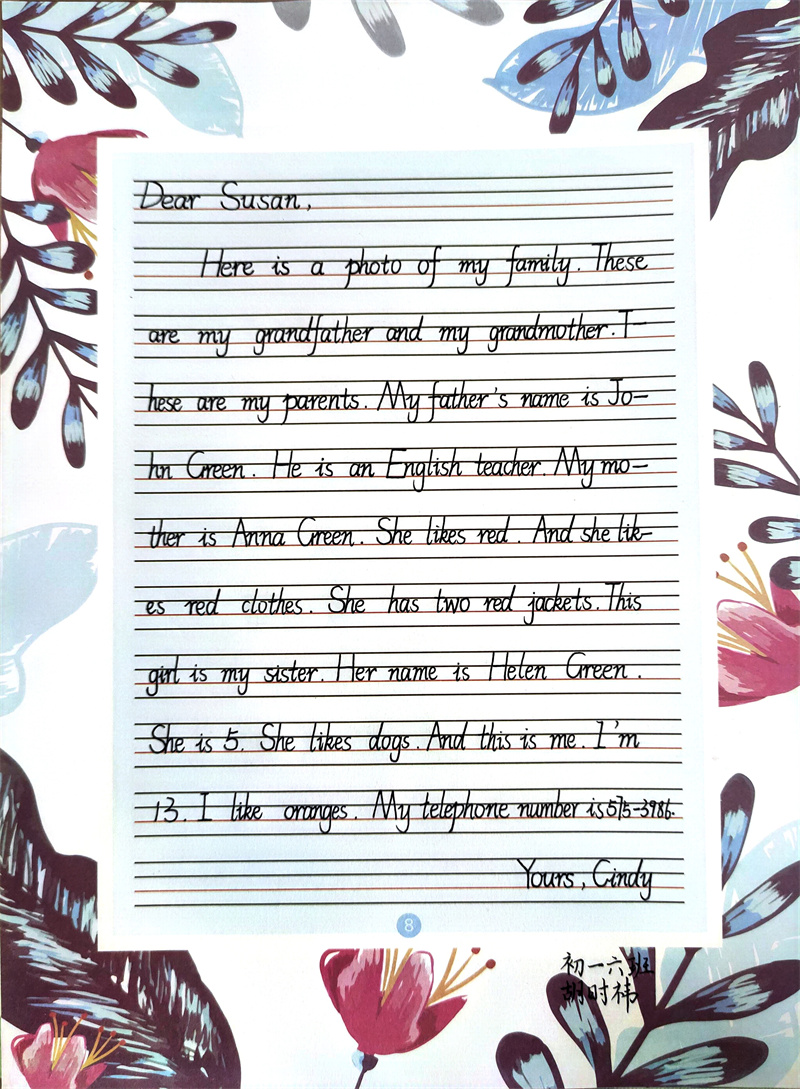 Dear Susan,
Here is a photo of my family. These
are my grandfather and my grandmother. T-
hese are my parents. My father's name is Jo-
hn Green. He is an English teacher. My mo-
ther is Anna Green. She likes red. And she lik-
es red clothes. She has two red jackets. This
girl is my sister. Her name is Helen Green.
She is 5. She likes dogs. And this is me. I'm
13. I like oranges. My telephone number is 575-3986.
Yours, Cindy
8
初一六班
胡时祎